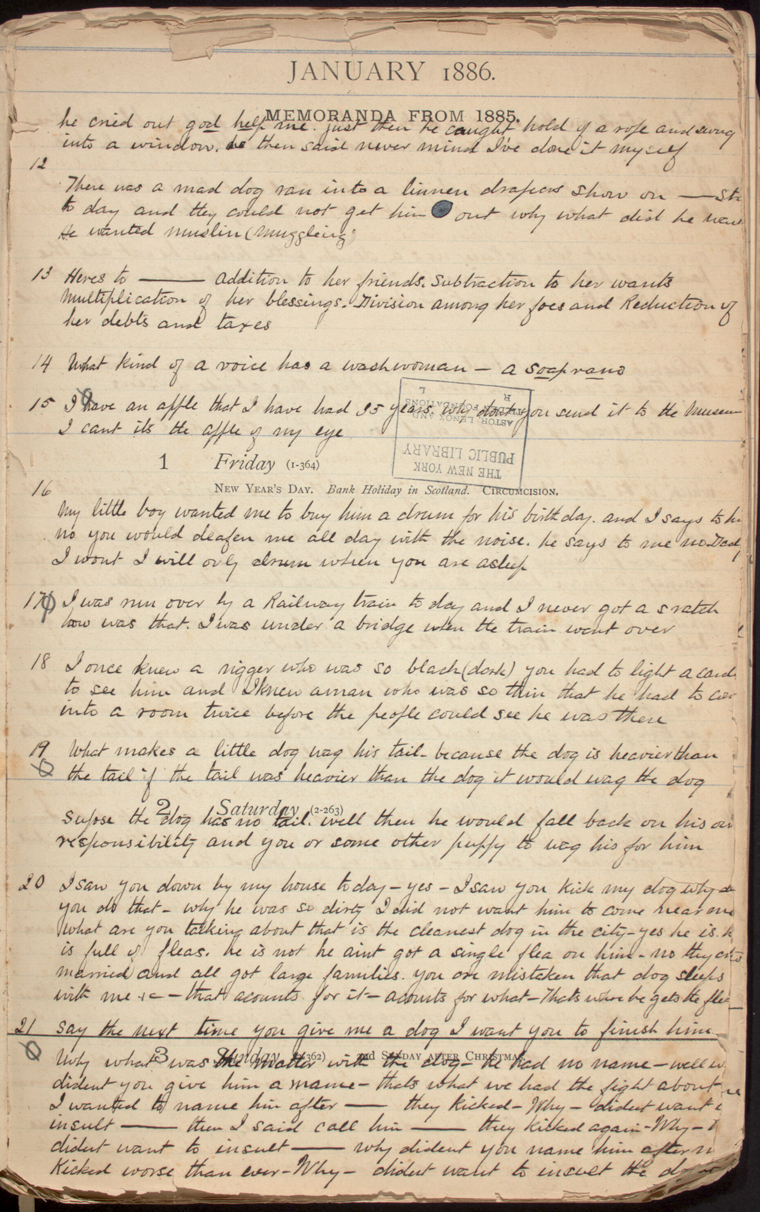 JANUARY 1886.
MEMORANDA FROM 1885.
he cried out god help me. just then he caught hold of a rope and swung
into a window. he then said never mind I've done it myself
12
There was a mad dog ran into a linnen drapers show on —
to day and they could not get him out why what did he
He wanted muslin (muzzleing)
13 Heres to —— addition to her friends. Subtraction to her wants
Multiplication of her blessings. Division among her foes and Reduction of
her debts and taxes
14 What kind of a voice has a washwoman — a soaprano
15 I have an apple that I have had 25 years. why dont you send it to the Museum
I cant its the apple of my eye
THE NEW YORK
PUBLIC LIBRARY
ASTOR, LENOX AND
FOUNDATIONS
R L
1 Friday (1-364)
NEW YEAR'S DAY. Bank Holiday in Scotland. CIRCUMCISION.
16
My little boy wanted me to buy him a drum for his birthday. and I says to
no you would deafen me all day with the noise. he says to me no Dad
I wont I will only drum when you are asleep
17 I was run over by a Railway train to day and I never got a sratch
how was that. I was under a bridge when the train went over
18 I once knew a nigger who was so black (dark) you had to light a
to see him and I knew a man who was so thin that he had to
into a room twice before the people could see he was there
19 What makes a little dog wag his tail - because the dog is heavier than
the tail if the tail was heavier than the dog it would wag the dog
2 Saturday (2-263)
Supose the dog has no tail. well then he would fall back on his
responsibility and you or some other puppy to wag his for him
20 I saw you down by my house to day - yes - I saw you kick my dog why
you do that - why he was so dirty I did not want him to come near me
what are you talking about that is the cleanest dog in the city - yes he is.
is full of fleas. he is not he aint got a single flea on him - no they
married and all got large families. you are mistaken that dog sleeps
with me — that acounts for it - acounts for what - Thats where he gets the
21 Say the next time you give me a dog I want you to finish him
3 Sunday 2nd SUNDAY AFTER CHRISTMAS.
Why what was the matter with the dog - he had no name - well
dident you give him a name - thats what we had the fight about
I wanted to name him after —— they kicked - Why - dident want
insult —— then I said call him —— they kicked again - Why -
dident want to insult —— why dident you name him after
Kicked worse than ever - Why - dident want to insult the